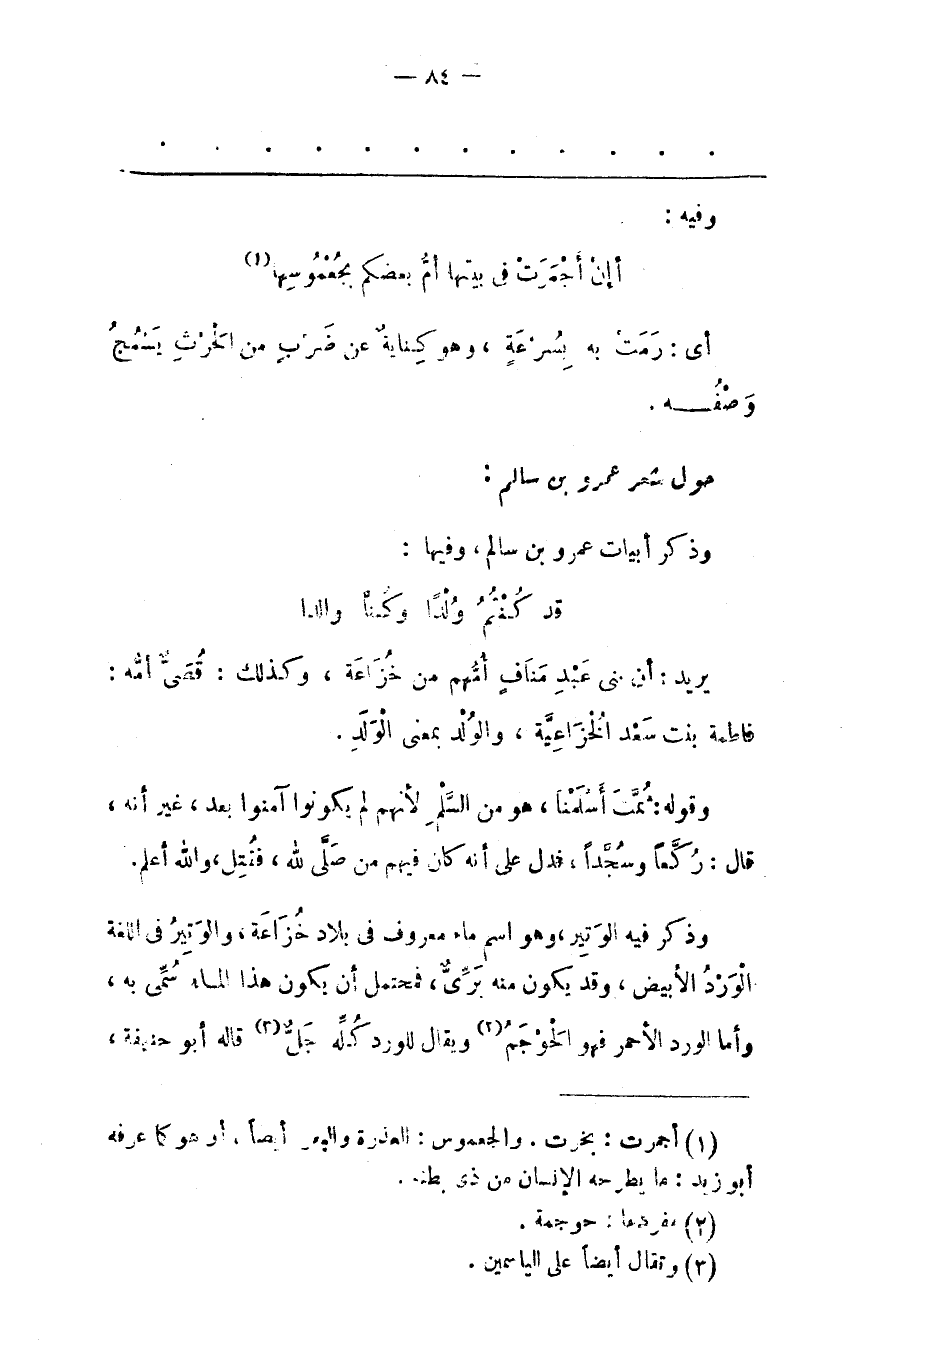 — ٨٤ —
. . . . . . . . . . . .
وفيه :
أإنْ أَجْمَرَتْ فى بيتها أمُّ بعضكم بجُعْمُوسِها(١)
أى : رَمَتْ به بِسُرْعَةٍ ، وهو كِنايةٌ عن ضَرْبٍ من الْخُرْثِ يَسْمُجُ
وَصْفُـــه .
حول شعر عمرو بن سالم :
وذكر أبيات عمرو بن سالم، وفيها :
قد كُنْتُمُ وُلْدًا وكُنَّا والدا
يريد : أن بنى عَبْدِ مَنَافٍ أُمُّهم من خُزَاعَة ، وكذلك : قُصَىٌّ أمُّه :
فاطمة بنت سَعْد الْخُزَاعِيَّة ، والوُلْد بمعنى الْوَلَدِ .
وقوله: ثُمَّتَ أَسْلَمْنَا ، هو من السَّلْمِ لأنهم لم يكونوا آمنوا بعد ، غير أنه ،
قال : رُكَّعاً وسُجَّداً ، فدل على أنه كان فيهم من صَلَّى لله ، فقُتِل، والله أعلم.
وذكر فيه الوَتِير، وهو اسم ماء معروف فى بلاد خُزَاعَة ، والوَتِيرُ فى اللغة
الْوَرْدُ الأبيض ، وقد يكون منه بَرِّىٌّ ، فمحتمل أن يكون هذا الماء سُمِّى به ،
وأما الورد الأحمر فهو الْحَوْجَمُ(٢) ويقال للورد كُلِّه جَلٌّ(٣) قاله أبو حنيفة ،
(١) أجمرت : بخرت . والجعموس : العذرة والبعر أيضاً ، أو هو كما عرفه
أبو زيد : ما يطرحه الإنسان من ذى بطنه .
(٢) مفردها : حوجمة .
(٣) وتقال أيضاً على الياسمين .